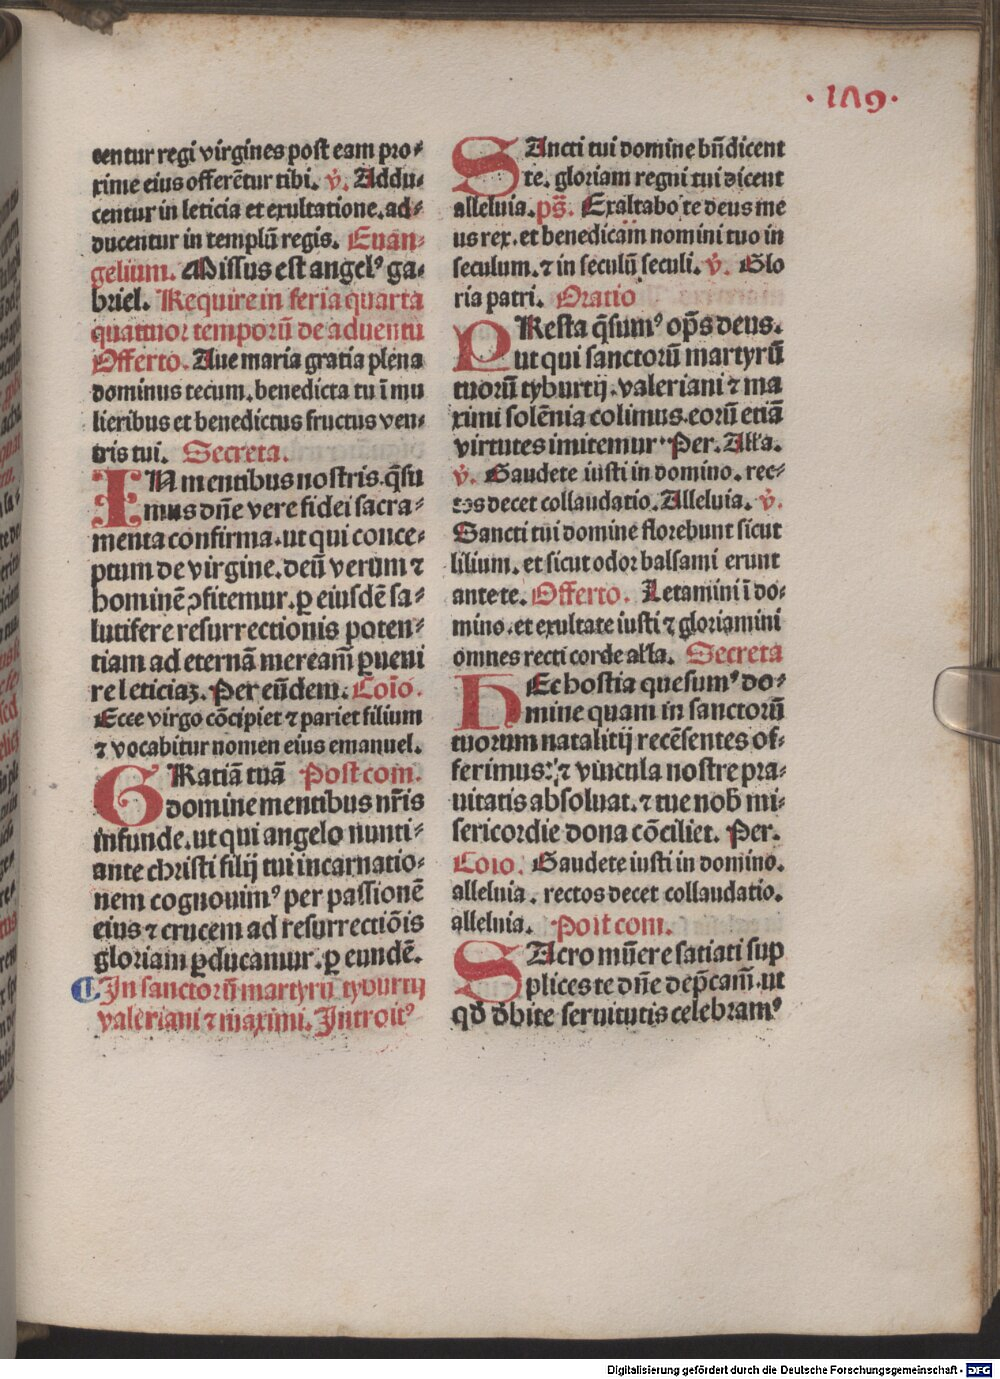 ·189·
centur regi virgines post eam pro⸗
xime eius offerētur tibi. v̄. Addu⸗
centur in leticia et exultatione. ad⸗
ducentur in templū regis. Euan⸗
gelium. Missus est angelꝰ ga⸗
briel. Require in feria quarta
quattuor temporū de aduentu
Offerto. Aue maria gratia plena
dominus tecum. benedicta tu ī mu
lieribus et benedictus fructus ven⸗
tris tui. Secreta.
IN mentibus nostris. q̄su
mus dn̄e vere fidei sacra⸗
menta confirma. ut qui conce⸗
ptum de virgine. deū verum ⁊
hominē ꝯfitemur. ꝑ eiusdē sa⸗
lutifere resurrectionis poten⸗
tiam ad eternā meream̄ ꝑueni
re leticiaꝫ. Per eūdem. Coīo.
Ecce virgo cōcipiet ⁊ pariet filium
⁊ vocabitur nomen eius emanuel.
GRatiā tuā Post com.
domine mentibus nr̄is
infunde. ut qui angelo nunti⸗
ante christi filij tui incarnatio⸗
nem cognouimꝰ per passionē
eius ⁊ crucem ad resurrectiōis
gloriam ꝑducamur. ꝑ eundē.
¶ In sanctorū martyrū tyburtij
valeriani ⁊ maximi. Introitꝰ
SAncti tui domine bn̄dicent
te. gloriam regni tui dicent
alleluia. ps̄. Exaltabo te deus me
us rex. et benedicam nomini tuo in
seculum. ⁊ in seculū seculi. v̄. Glo
ria patri. Oratio
PResta q̄sumꝰ op̄s deus.
ut qui sanctorū martyrū
tuorū tyburtij. valeriani ⁊ ma
ximi solēnia colimus. eorū etiā
virtutes imitemur. Per. Alľa.
v̄. Gaudete iusti in domino. rec⸗
tos decet collaudatio. Alleluia. v̄.
Sancti tui domine florebunt sicut
lilium. et sicut odor balsami erunt
ante te. Offerto. Letamini ī do⸗
mino. et exultate iusti ⁊ gloriamini
omnes recti corde alľa. Secreta
HEc hostia quesumꝰ do⸗
mine quam in sanctorū
tuorum natalitij recēsentes of⸗
ferimus: ⁊ vincula nostre pra⸗
uitatis absoluat. ⁊ tue nob̄ mi⸗
sericordie dona cōciliet. Per.
Coīo. Gaudete iusti in domino.
alleluia. rectos decet collaudatio.
alleluia. Post com.
SAcro mūere satiati sup
plices te dn̄e dep̄cam̄. ut
qd̄ d̄bite seruitutis celebramꝰ
Digitalisierung gefördert durch die Deutsche Forschungsgemeinschaft - DFG